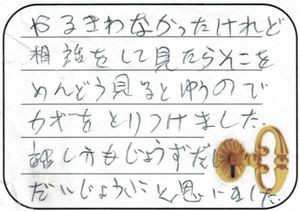 やるきわなかったけれど
相談をして見たらそこを
めんどう見るとゆうので
カギをとりつけました.
話し方もじょうずだ
だいじょうぶと思いました.